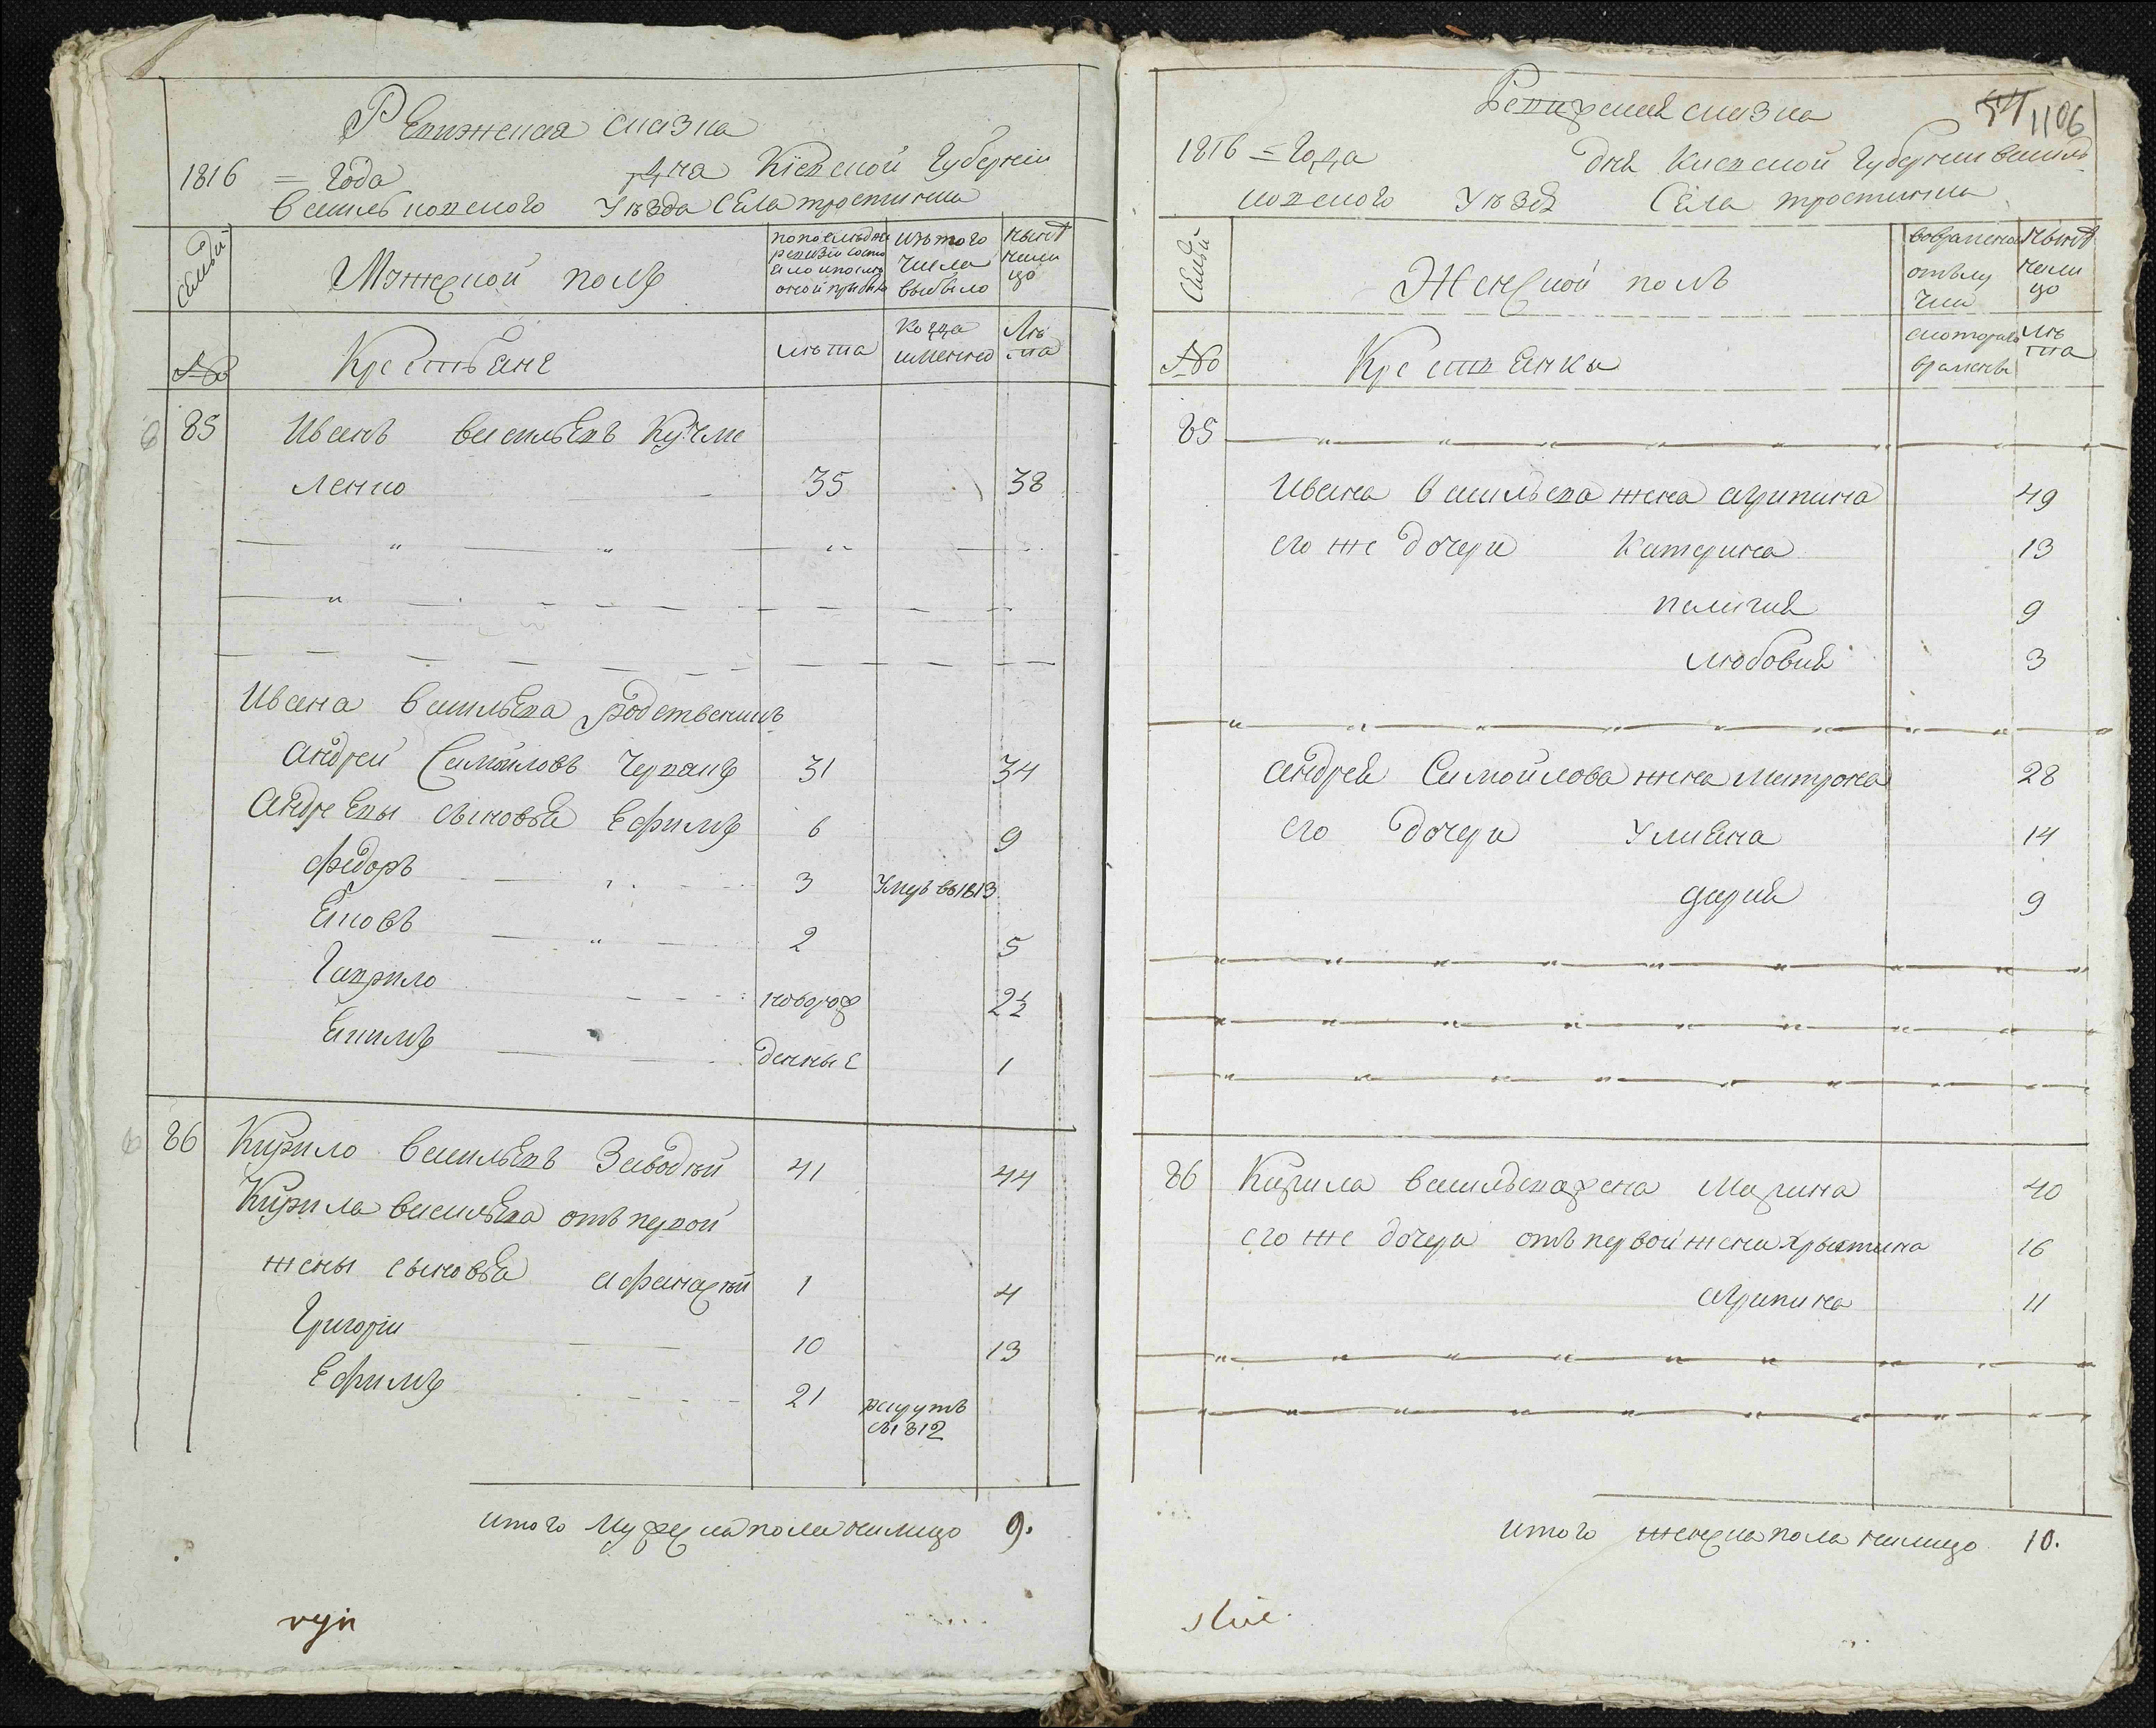 Ревижская сказка
1816 = года дня Кіевской Губерніи
Васильковского Уѣзда Села тростинки
Семьи
Мужеской полъ
попослѣдней ревизіи состояло ипослѣ оной прибыло
изътого числа выбыло
нынѣ налицо
№
Крестьяне
лѣта
когда именно
Лѣта
85 Иванъ васильевъ Кучме
ленко 35 38
Ивана васильева родственникъ
андрей Самойловъ Червакъ 31 34
Андреевы сыновья Ефимъ 6 9
Федоръ 3 Умръ въ1813
Яковъ 2 5
Гаврило новорож 2½
Якимъ денные 1
86 Кирило васильевъ Заводній 41 44
Кирила васильева отъ первой
жены сыновья афанасій 1 4
Григорій 10 13
Ефимъ 21 рекрутъ
въ1812
итого мужеска пола налицо 9.
Ревижская сказка
1106
1816 = Года дня Киевской Губернии василь
ковского Уѣзда Села тростинки
Семьи
Женской полъ
вовременной отълучки
Нынѣ налицо
№
Крестьянки
скоторого времени
Лѣта
85
Ивана васильева жена агрипина 49
его же дочери Катерина 13
пелагия 9
любовия 3
андрея Самойлова жена Матрона 28
его дочери Улияна 14
дария 9
86 Кирила васильева жена Марина 40
его же дочери отъ первой жены Хрыстина 16
агрипина 11
итого женска пола налицо 10.